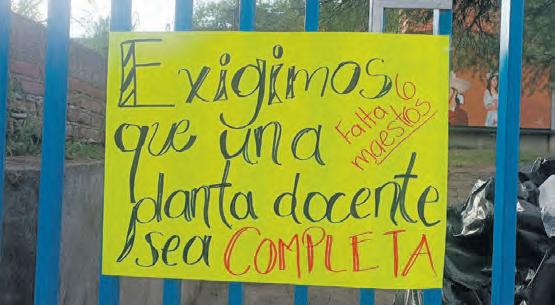 Exigimos
que una
planta docente
sea COMPLETA
Falta 6
maestros